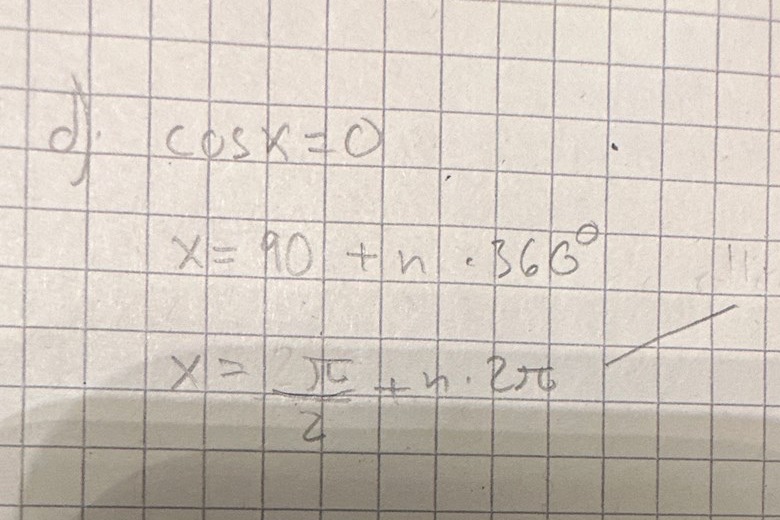 d). cosx=0
x= 90 + n · 360°
x = π/2 + n · 2π